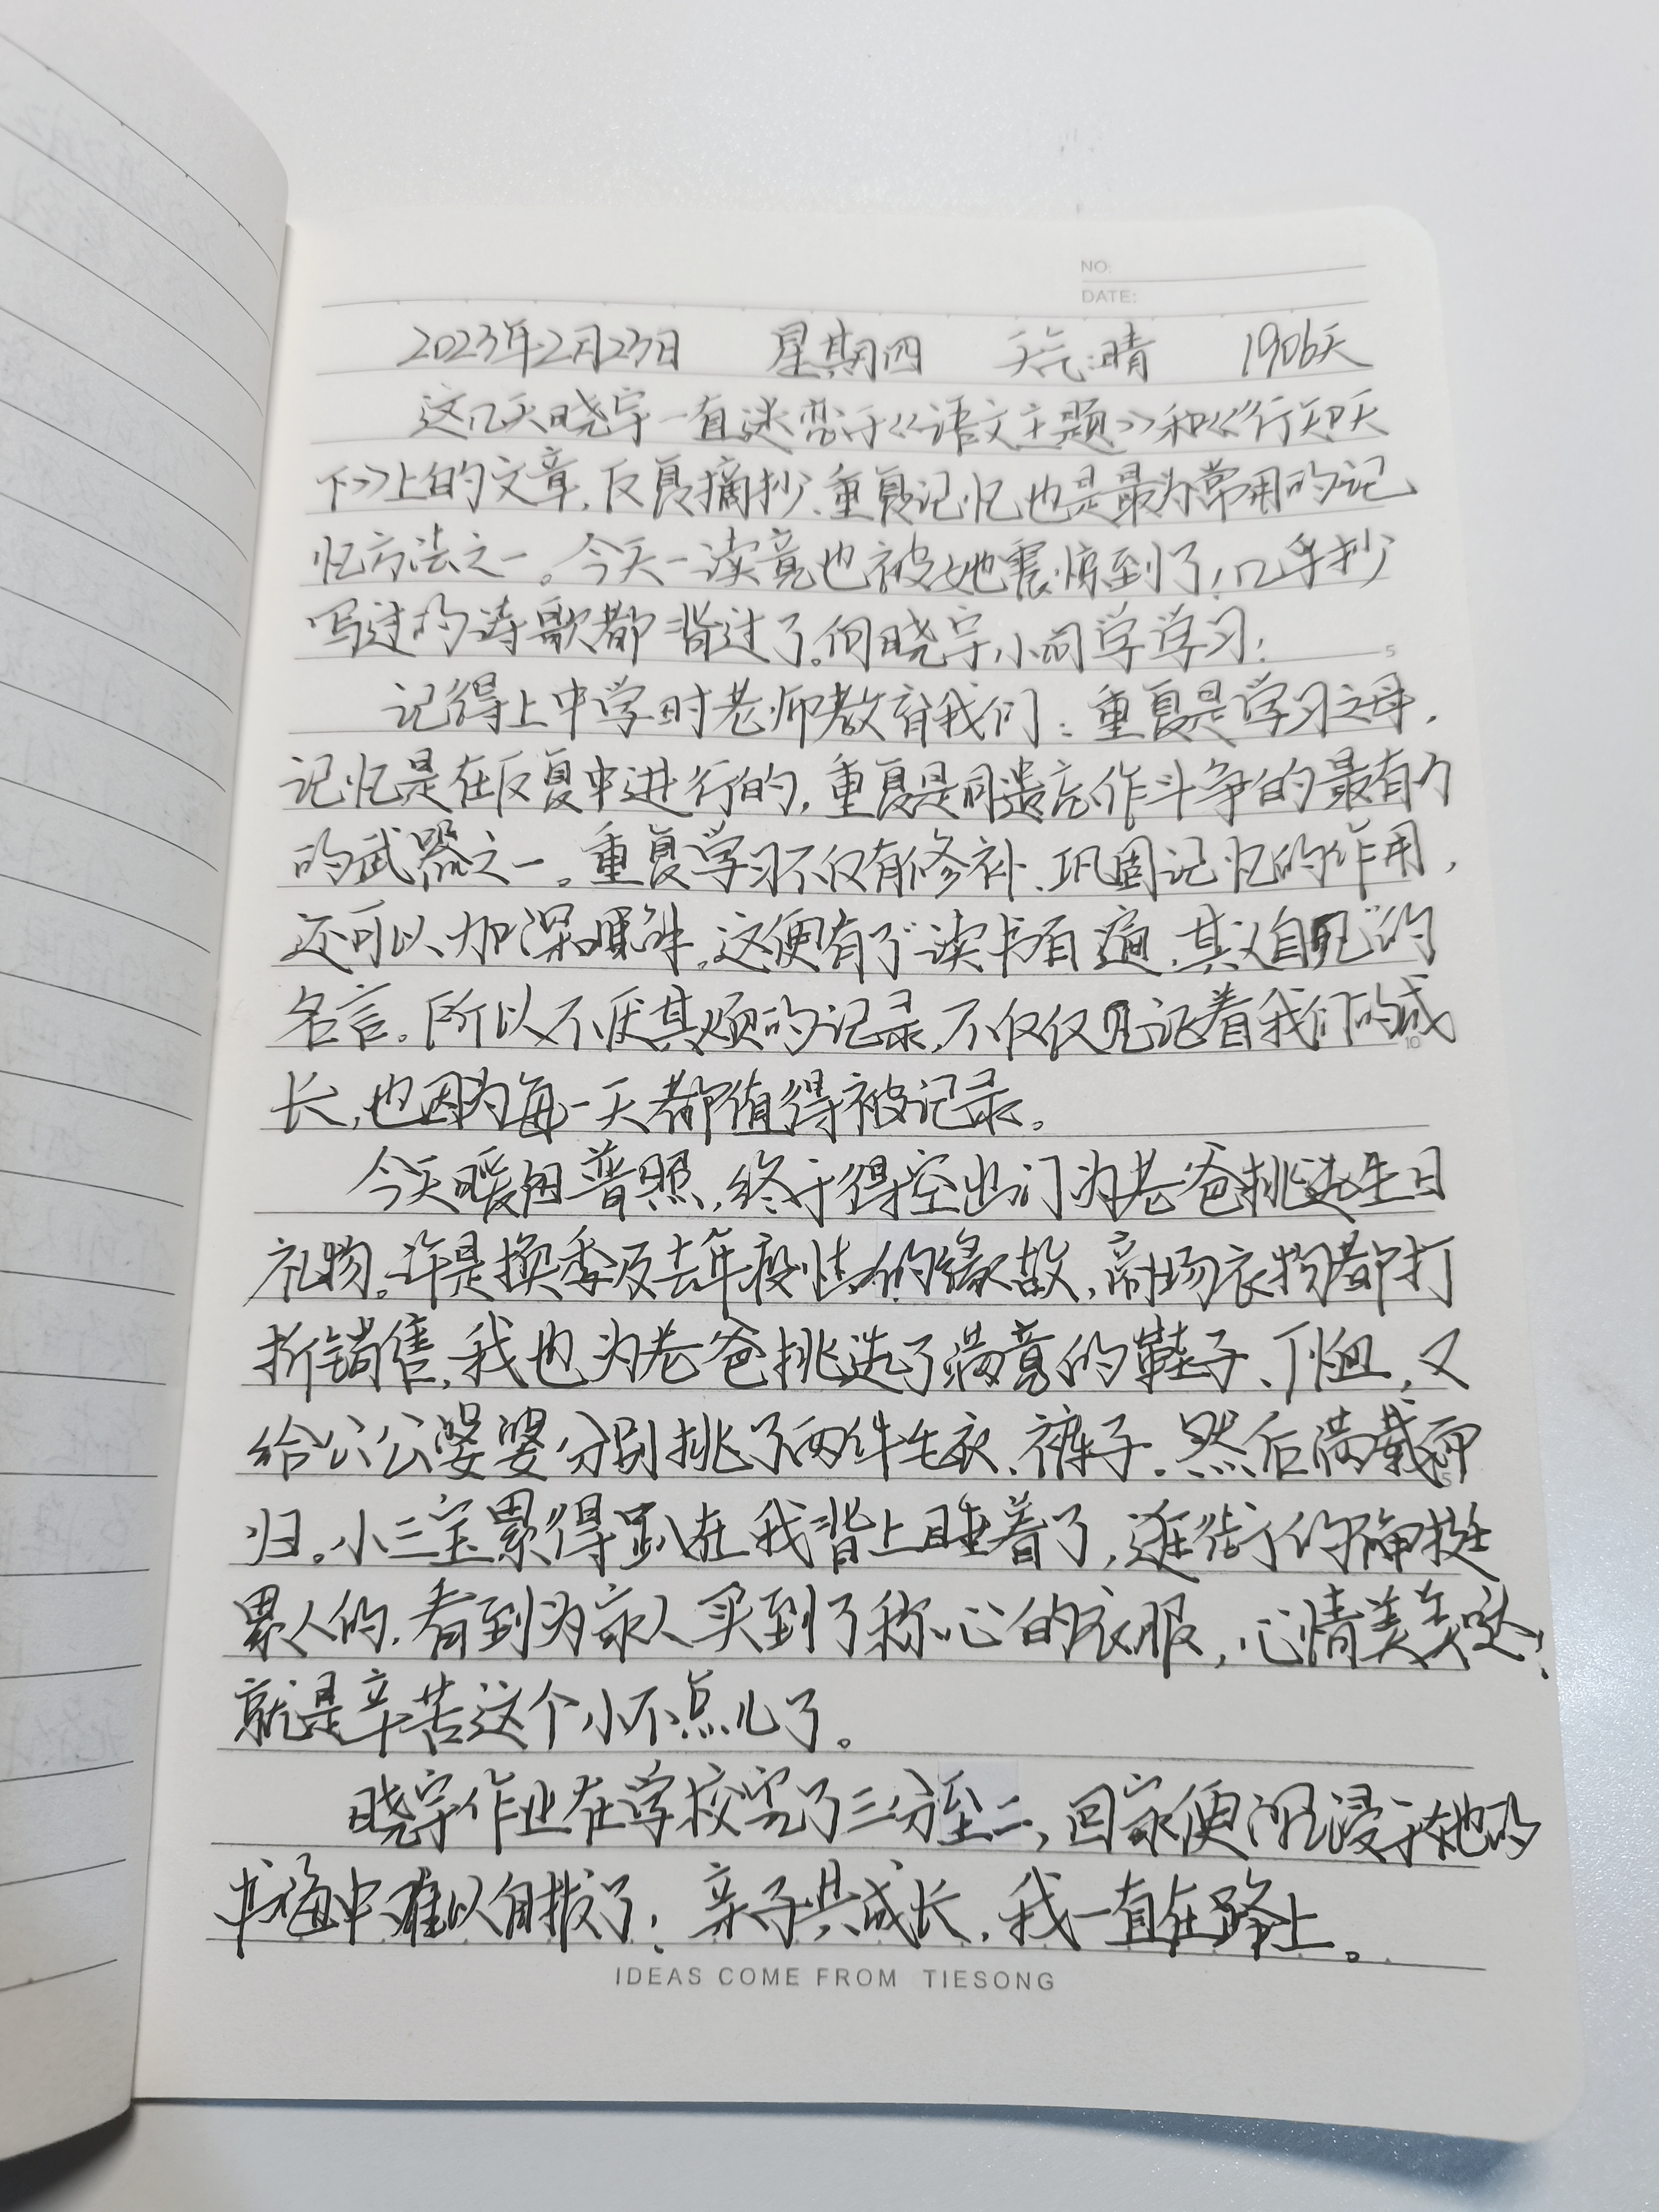 NO:
DATE:
2023年2月23日 星期四 天气:晴 1906天
这几天晓宇一直迷恋于《语文主题》和《行知天
下》上的文章,反复摘抄、重复记忆也是最为常用的记
忆方法之一。今天一读竟也被她震惊到了!几乎抄
写过的诗歌都背过了。向晓宇小同学学习!
5
记得上中学时老师教育我们:重复是学习之母,
记忆是在反复中进行的,重复是同遗忘作斗争的最有力
的武器之一。重复学习不仅有修补、巩固记忆的作用,
还可以加深理解。这便有了“读书百遍,其义自见”的
名言。所以不厌其烦的记录,不仅仅见证着我们的成
10
长,也因为每一天都值得被记录。
今天暖阳普照,终于得空出门为老爸挑选生日
礼物。许是换季及去年疫情的缘故,商场衣物都打
折销售,我也为老爸挑选了满意的鞋子、T恤,又
给公公婆婆分别挑了两件毛衣、裤子。然后满载而
归。小三宝累得趴在我背上睡着了,逛街的确挺
累人的,看到为家人买到了称心的衣服,心情美美哒!
就是辛苦这个小不点儿了。
晓宇作业在学校完了三分至二,回家便沉浸于她的
书海中难以自拔了!亲子共成长,我一直在路上。
IDEAS COME FROM TIESONG